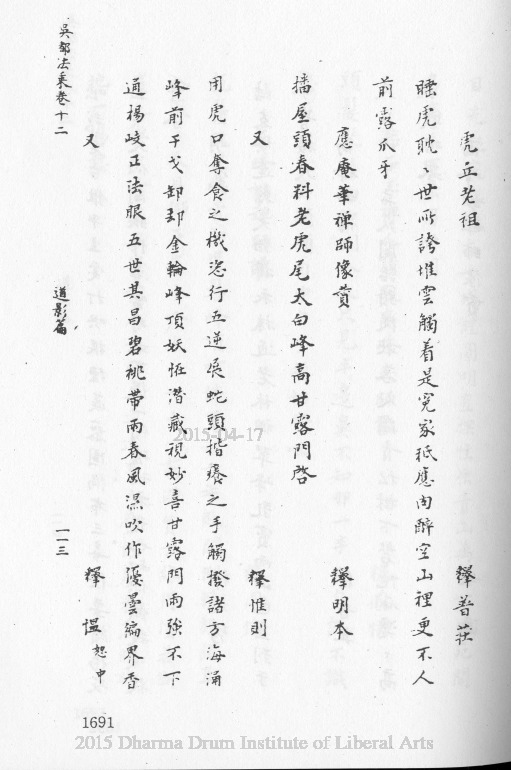 虎丘老祖
釋普莊
睡虎耽〻世所誇堆雲觸着是冤家祇應肉醉空山裡更不人
前露爪牙
應庵華禪師像贊
釋明本
播屋頭春料老虎尾大白峰高甘露門啓
又
釋惟則
用虎口奪食之機恣行五逆展蛇頭揩癢之手觸撥諸方海涌
峰前干戈卸却金輪峰頂妖怪潛藏視妙喜甘露門兩強不下
通楊岐正法眼五世其昌碧桃帶雨春風濕吹作優曇徧界香
又
釋愠恕中
吳都法乘卷十二
道影篇
一一三
1691
2015-04-17
2015 Dharma Drum Institute of Liberal Arts